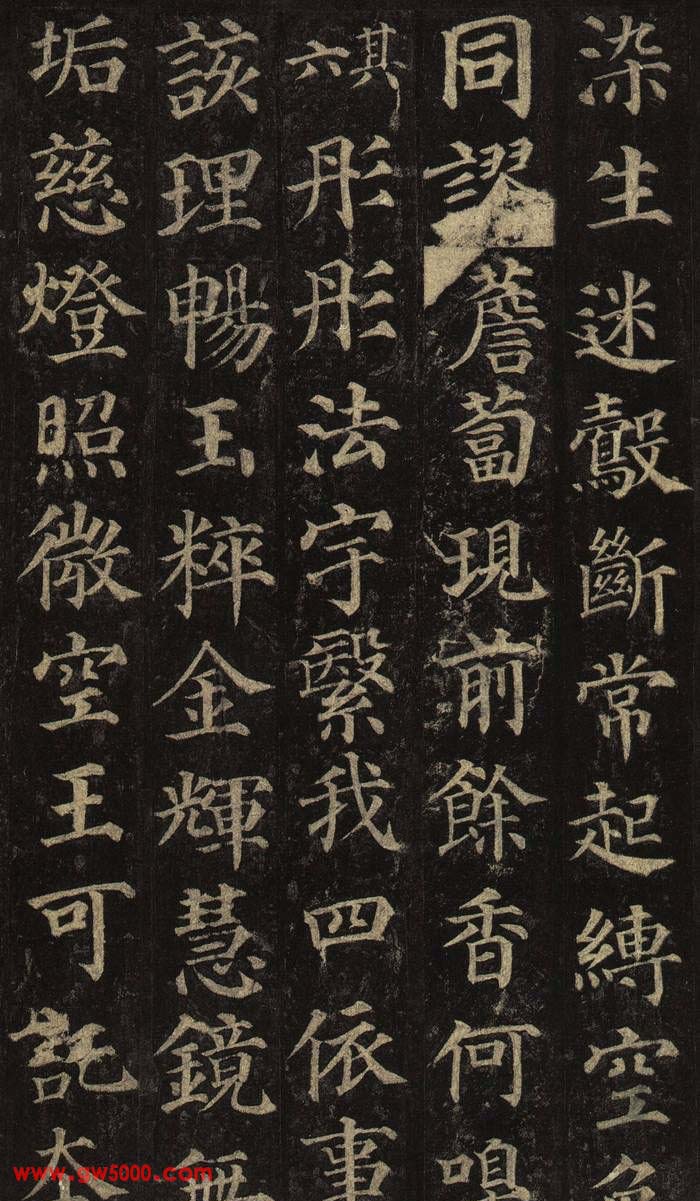 染生迷鷇斷常起縛空色
同謬薝蔔現前餘香何嗅
其六彤彤法宇繄我四依事
該理暢玉粹金輝慧鏡無
垢慈燈照微空王可託本
www.gw5000.com